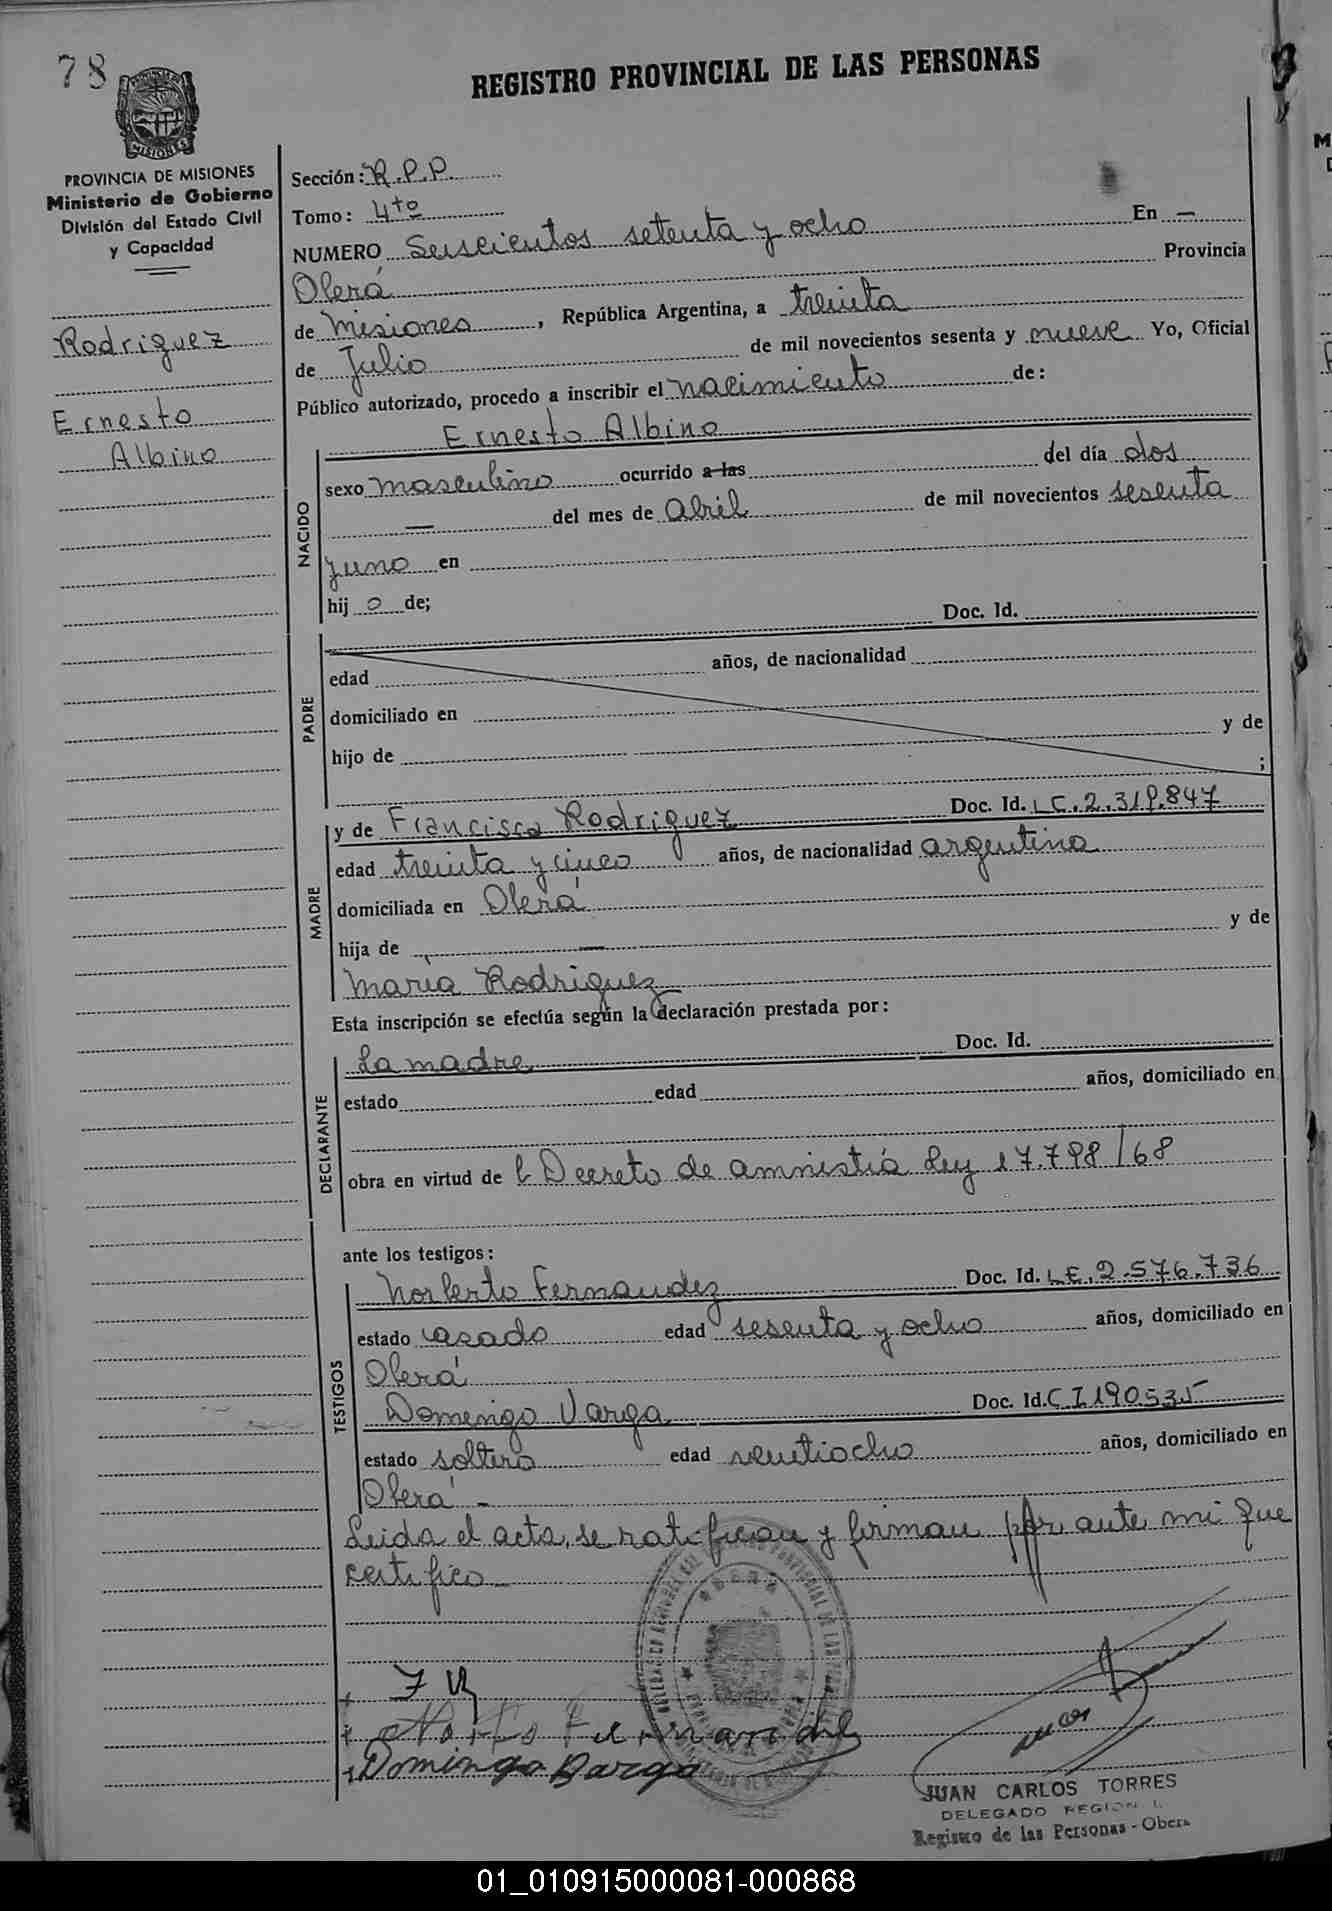 78
REGISTRO PROVINCIAL DE LAS PERSONAS
MISIONES
PROVINCIA DE MISIONES
Ministerio de Gobierno
División del Estado Civil
y Capacidad
Rodriguez
Ernesto
Albino
Sección: R.P.P.
Tomo: 4to
NUMERO Seiscientos setenta y ocho En —
Oberá Provincia
de Misiones, República Argentina, a treinta
de Julio de mil novecientos sesenta y nueve Yo, Oficial
Público autorizado, procedo a inscribir el nacimiento de:
Ernesto Albino
NACIDO
sexo masculino ocurrido a las del día dos
— del mes de Abril de mil novecientos sesenta
y uno en
hij o de;
Doc. Id.
PADRE
edad años, de nacionalidad
domiciliado en
hijo de y de
;
MADRE
y de Francisca Rodriguez Doc. Id. LC.2.319.847
edad treinta y cinco años, de nacionalidad argentina
domiciliada en Oberá
hija de — y de
María Rodriguez
Esta inscripción se efectúa según la declaración prestada por:
DECLARANTE
La madre Doc. Id.
estado edad años, domiciliado en
obra en virtud de l Decreto de amnistía Ley 17.798/68
ante los testigos:
TESTIGOS
Norberto Fernandez Doc. Id. LE.2.576.736
estado casado edad sesenta y ocho años, domiciliado en
Oberá
Domingo Varga Doc. Id. CI 190535
estado soltero edad veintiocho años, domiciliado en
Oberá —
Leida el acta, se ratifican y firman por ante mi que
certifico
Domingo Barga
JUAN CARLOS TORRES
DELEGADO REGION
Registro de las Personas - Oberá
01_010915000081-000868